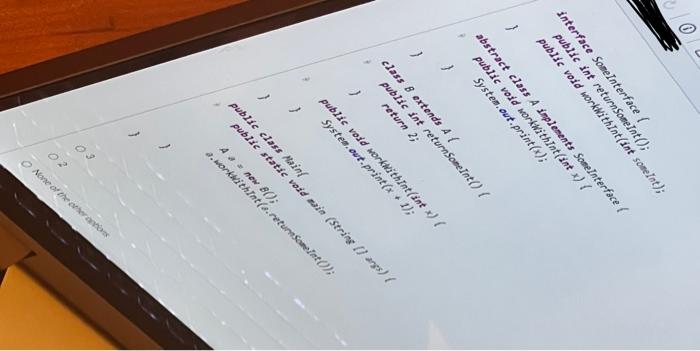 interface SomeInterface {
public int returnSomeInt();
public void workWithInt(int someInt);
}
abstract class A implements SomeInterface {
public void workWithInt(int x) {
System.out.print(x);
}
}
class B extends A {
public int returnSomeInt() {
return 2;
}
public void workWithInt(int x) {
System.out.print(x + 1);
}
}
public class Main{
public static void main (String [] args) {
A a = new B();
a.workWithInt(a.returnSomeInt());
}
}
3
2
None of the other options